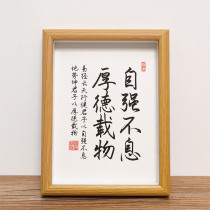 自强不息
厚德载物
易经云天行健君子以自强不息
地势坤君子以厚德载物